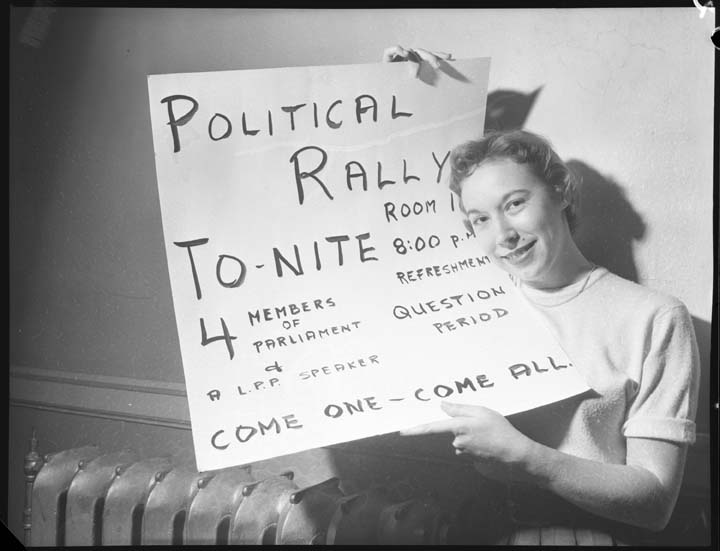 POLITICAL
RALLY
TO-NITE
ROOM
8:00 P.M
REFRESHMENT
4 MEMBERS
OF
PARLIAMENT
&
A L.P.P. SPEAKER
QUESTION
PERIOD
COME ONE - COME ALL.